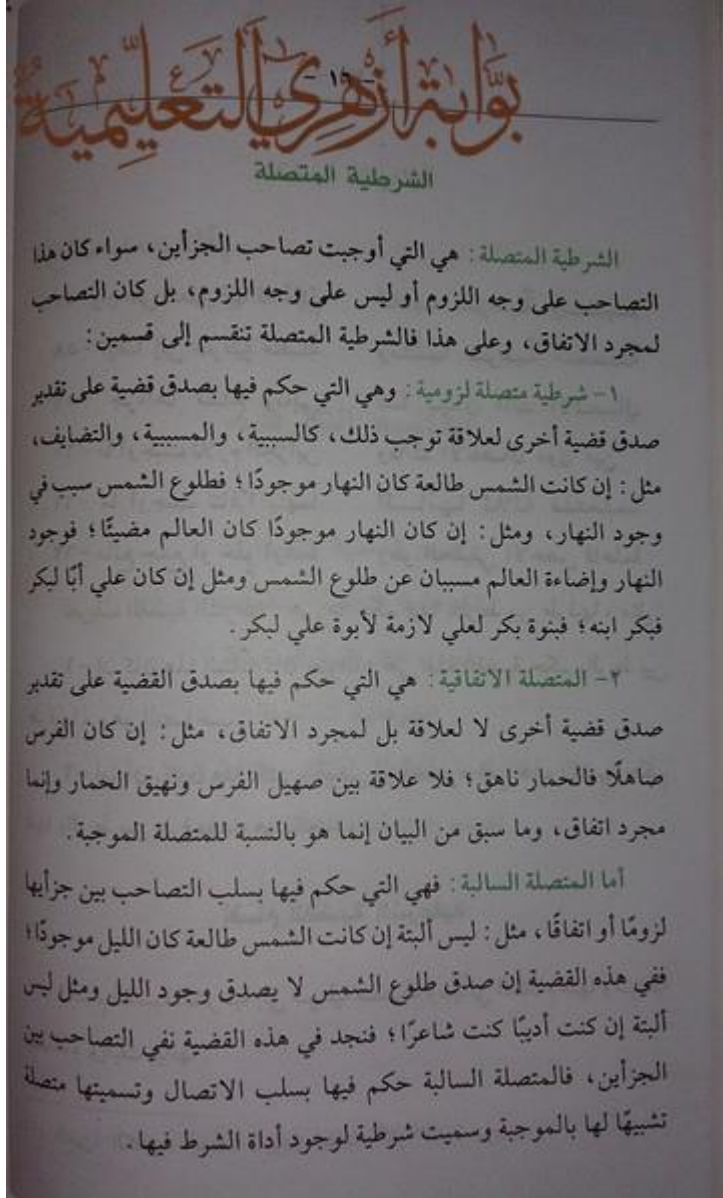 - ١٦ -
بوابة أزهري التعليمية
الشرطية المتصلة
الشرطية المتصلة: هي التي أوجبت تصاحب الجزأين، سواء كان هذا
التصاحب على وجه اللزوم أو ليس على وجه اللزوم، بل كان التصاحب
لمجرد الاتفاق، وعلى هذا فالشرطية المتصلة تنقسم إلى قسمين:
١- شرطية متصلة لزومية: وهي التي حكم فيها بصدق قضية على تقدير
صدق قضية أخرى لعلاقة توجب ذلك، كالسببية، والمسببية، والتضايف،
مثل: إن كانت الشمس طالعة كان النهار موجودًا؛ فطلوع الشمس سبب في
وجود النهار، ومثل: إن كان النهار موجودًا كان العالم مضيئًا؛ فوجود
النهار وإضاءة العالم مسببان عن طلوع الشمس ومثل إن كان علي أبًا لبكر
فبكر ابنه؛ فبنوة بكر لعلي لازمة لأبوة علي لبكر.
٢- المتصلة الاتفاقية: هي التي حكم فيها بصدق القضية على تقدير
صدق قضية أخرى لا لعلاقة بل لمجرد الاتفاق، مثل: إن كان الفرس
صاهلًا فالحمار ناهق؛ فلا علاقة بين صهيل الفرس ونهيق الحمار وإنما
مجرد اتفاق، وما سبق من البيان إنما هو بالنسبة للمتصلة الموجبة.
أما المتصلة السالبة: فهي التي حكم فيها بسلب التصاحب بين جزأيها
لزومًا أو اتفاقًا، مثل: ليس ألبتة إن كانت الشمس طالعة كان الليل موجودًا؛
ففي هذه القضية إن صدق طلوع الشمس لا يصدق وجود الليل ومثل ليس
ألبتة إن كنت أديبًا كنت شاعرًا؛ فنجد في هذه القضية نفي التصاحب بين
الجزأين، فالمتصلة السالبة حكم فيها بسلب الاتصال وتسميتها متصلة
تشبيهًا لها بالموجبة وسميت شرطية لوجود أداة الشرط فيها.